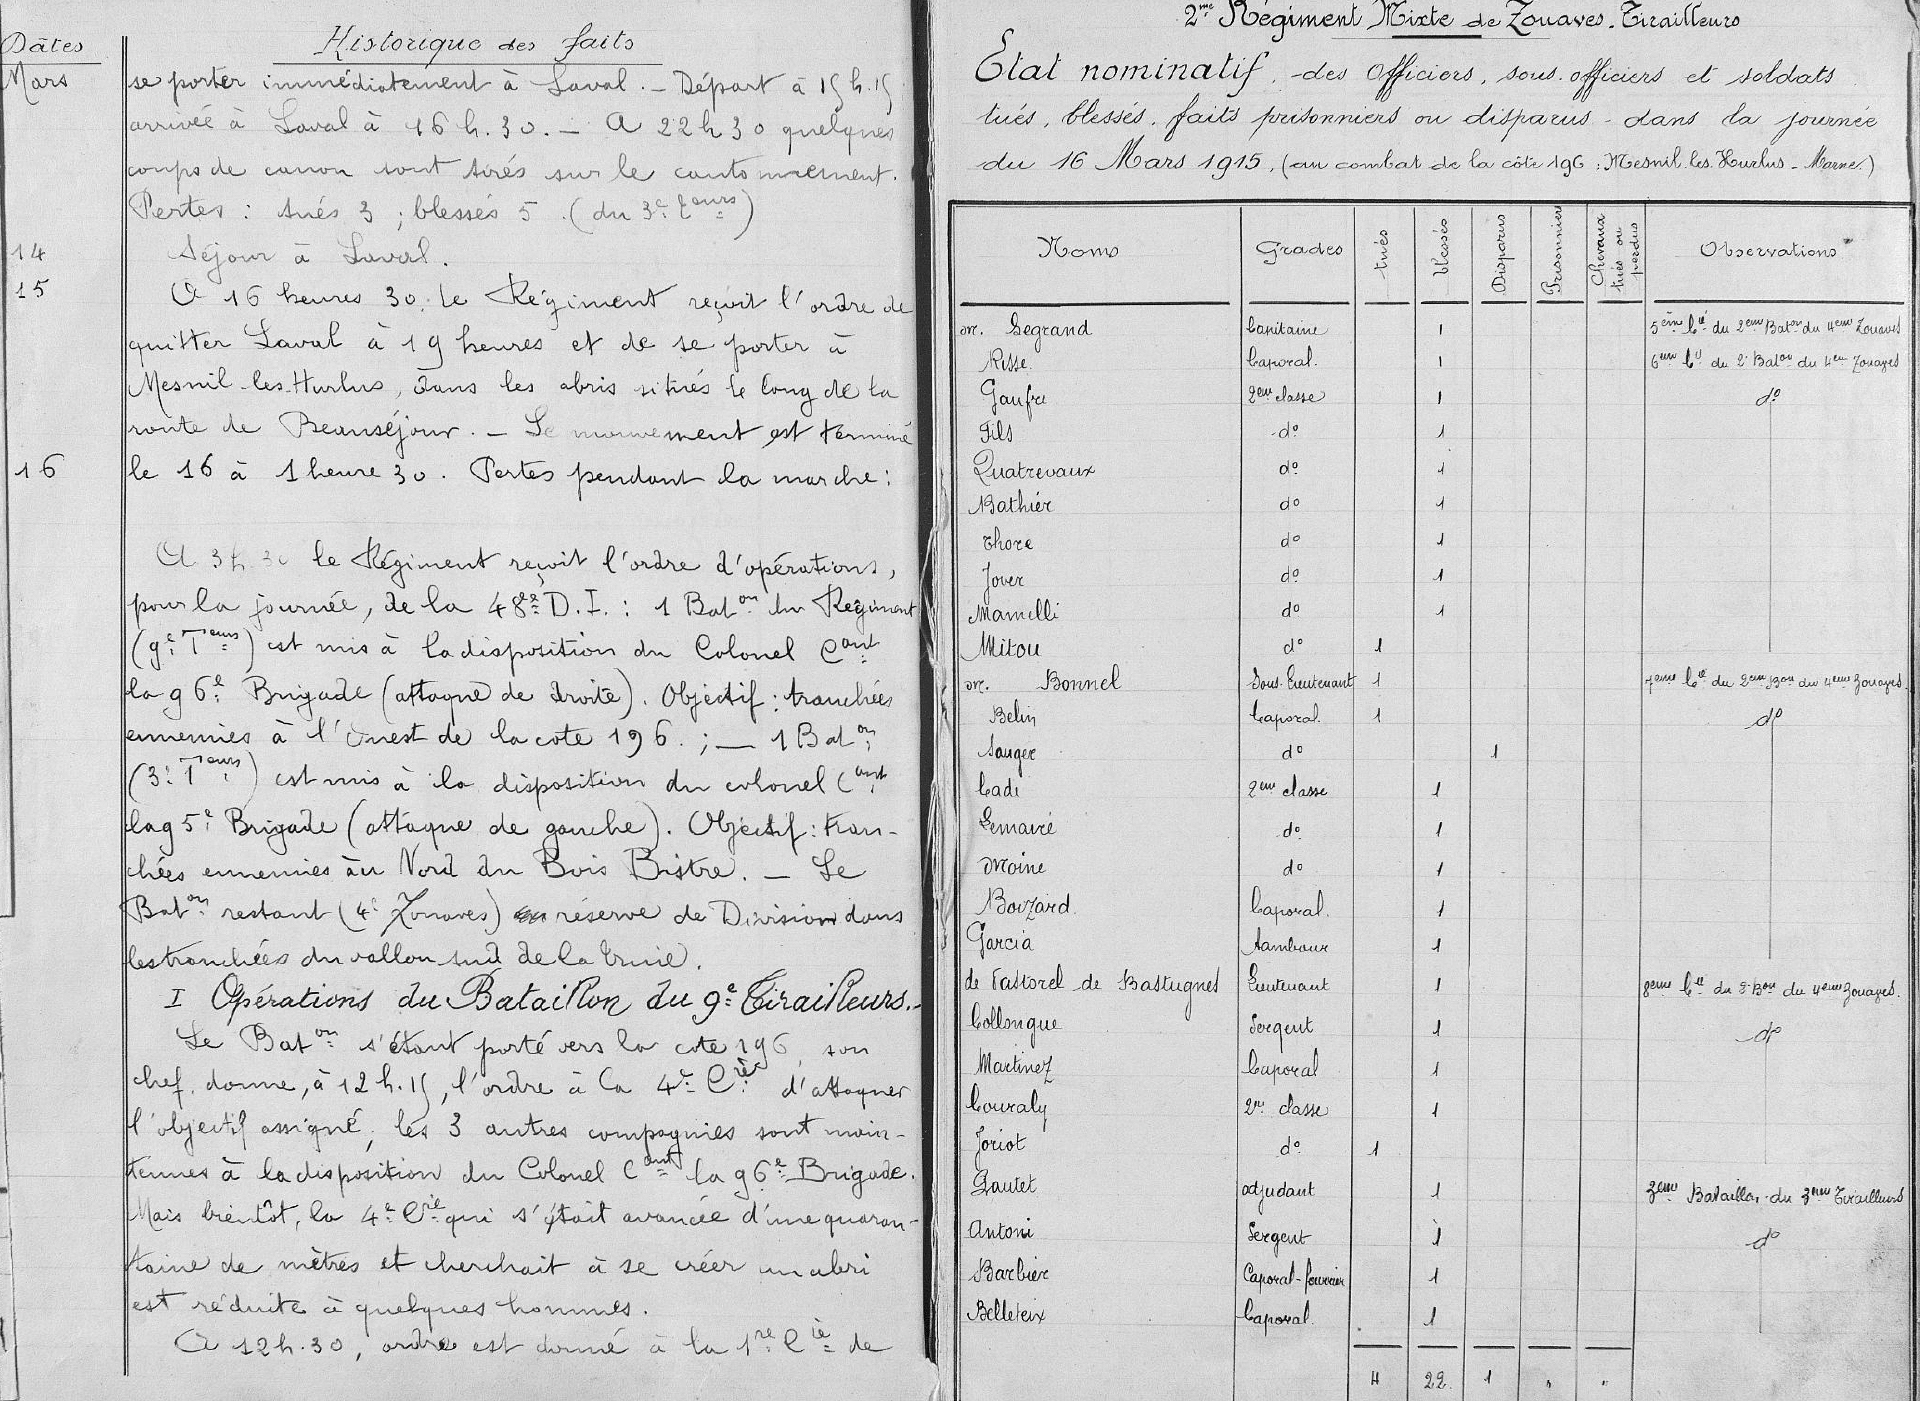 Dâtes
Historique des faits
Mars
se porter immédiatement à Laval. — Départ à 15 h. 15
arrivée à Laval à 16 h. 30. — A 22 h 30 quelques
coups de canon sont tirés sur le cantonnement.
Pertes : tués 3 ; blessés 5 . (du 3e Teurs)
14 Séjour à Laval.
15 A 16 heures 30. le Régiment reçoit l'ordre de
quitter Laval à 19 heures et de se porter à
Mesnil-les-Hurlus, dans les abris situés le long de la
route de Beauséjour. — Le mouvement est terminé
16 le 16 à 1 heure 30. Pertes pendant la marche :
A 3 h. 30 le Régiment reçoit l'ordre d'opérations,
pour la journée, de la 48e D.I. : 1 Baton du Régiment
(9e Teurs) est mis à la disposition du Colonel Cant
la 96e Brigade (attaque de droite). Objectif : tranchées
ennemies à l'Ouest de la cote 196. ; — 1 Baton
(3e Teurs) est mis à la disposition du colonel Cant
la 95e Brigade (attaque de gauche). Objectif : tran-
chées ennemies au Nord du Bois Bistre. — Le
Baton restant (4e Zouaves) en réserve de Division dans
les tranchées du vallon sud de la truie.
I Opérations du Bataillon du 9e Tirailleurs.-
Le Baton s'étant porté vers la cote 196, son
chef. donne, à 12 h. 15, l'ordre à la 4e Cie d'attaquer
l'objectif assigné, les 3 autres compagnies sont main-
tenues à la disposition du Colonel Cant la 96e Brigade.
Mais bientôt, la 4e Cie qui s'était avancée d'une quaran-
taine de mètres et cherchait à se créer un abri
est réduite à quelques hommes.
A 12 h. 30, ordre est donné à la 1re Cie de
2me Régiment Mixte de Zouaves-Tirailleurs
Etat nominatif, des Officiers, sous-officiers et soldats
tués, blessés, faits prisonniers ou disparus dans la journée
du 16 Mars 1915, (au combat de la côte 196 : Mesnil les Hurlus - Marne.)
Noms Grades tués blessés Disparus Prisonniers Chevaux tués ou perdus Observations
M. Legrand Capitaine 1 5ème Cie du 2eme Baton du 4eme Zouaves
Risse Caporal. 1 6eme Cie du 2e Baton du 4eme Zouaves
Gaufre 2eme classe 1 do
Fils do 1
Quatrevaux do 1
Bathier do 1
Thore do 1
Jover do 1
Mamelli do 1
Mitou do 1
M. Bonnel Sous-Lieutenant 1 7eme Cie du 2eme Bon du 4eme Zouaves.
Belin Caporal 1 do
Sauger do 1
Cadi 2eme classe 1
Lemaire do 1
Moine do 1
Bouzard Caporal. 1
Garcia tambour 1
de Pastorel de Bastugnes Lieutenant 1 8eme Cie du 2e Bon du 4eme Zouaves.
Collongue Sergent 1 do
Martinez Caporal 1
Couraly 2me classe 1
Joriot do 1
Lautet adjudant 1 3eme Bataillon du 3eme Tirailleurs
Antoni Sergent 1 do
Barbier Caporal-fourrier 1
Belleteix Caporal 1
4 22 1 " "